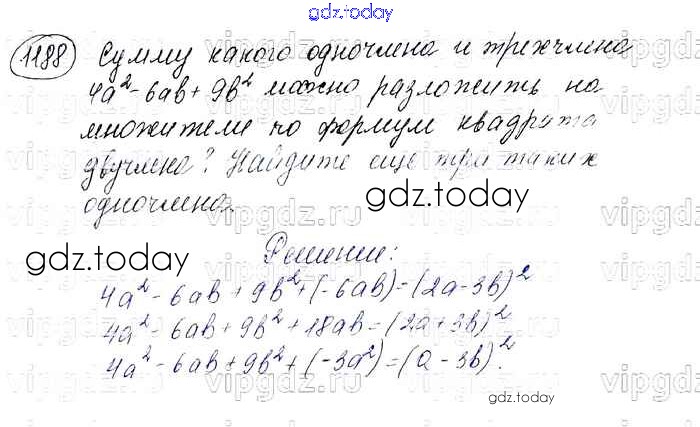 gdz.today
1188 Сумму какого одночлена и трехчлена
4a² - 6ab + 9b² можно разложить на
множители по формул квадрата
двучлена? Найдите еще три таких
одночлена.
gdz.today
Решение:
gdz.today
4a² - 6ab + 9b² + (-6ab) = (2a - 3b)²
4a² - 6ab + 9b² + 18ab = (2a + 3b)²
4a² - 6ab + 9b² + (-3a²) = (a - 3b)².
gdz.today
vipgdz.ru